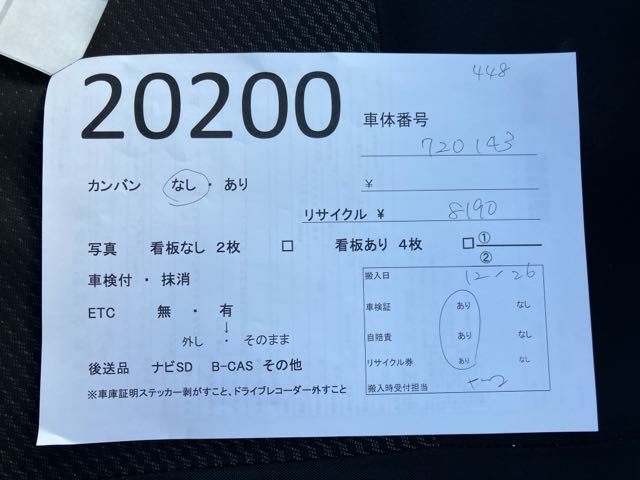 448
20200
車体番号
720143
カンバン なし ・ あり
¥
リサイクル ¥ 8190
写真 看板なし 2枚 □ 看板あり 4枚 □ ①
②
車検付 ・ 抹消
搬入日 12/26
ETC 無 ・ 有
↓
外し ・ そのまま
車検証 あり なし
自賠責 あり なし
リサイクル券 あり なし
搬入時受付担当
後送品 ナビSD B-CAS その他
※車庫証明ステッカー剥がすこと、ドライブレコーダー外すこと